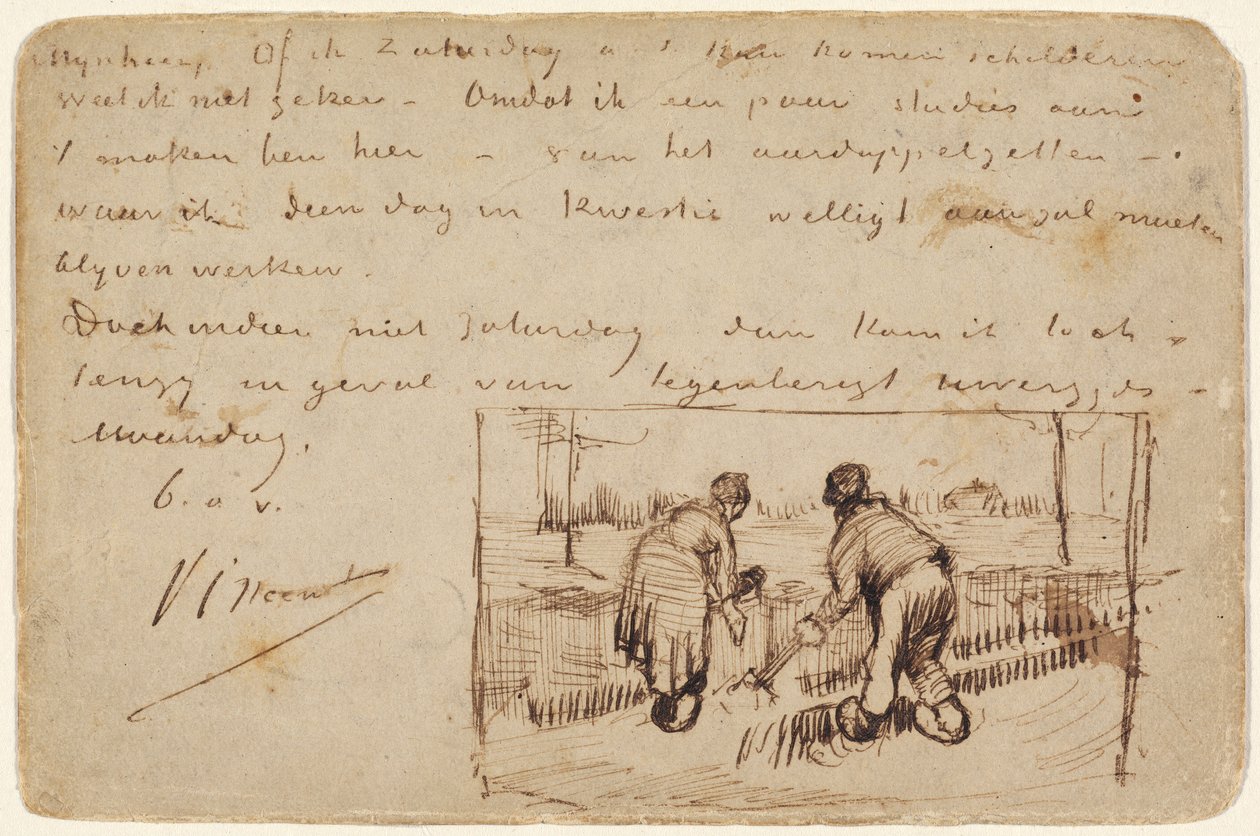 Mynheer, Of ik Zaturdag a s kan komen schilderen
weet ik niet zeker – Omdat ik een paar studies aan
't maken ben hier – van het aardappelzetten –.
waar ik dien dag in kwestie welligt aan zal moeten
blyven werken.
Doch indien niet Zaturdag dan kom ik toch
tenzy in geval van tegenberigt uwerzyds –
Maandag.
b. a v.
Vincent